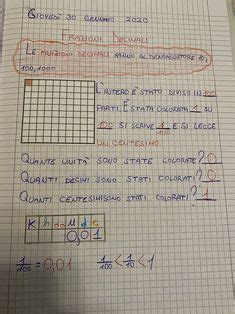 GIOVEDÌ 30 GENNAIO 2020
FRAZIONI DECIMALI
LE FRAZIONI DECIMALI HANNO AL DENOMINATORE 10,
100, 1000
L'INTERO È STATO DIVISO IN 100
PARTI. È STATA COLORATA 1 SU
100 SI SCRIVE 1/100 E SI LEGGE
UN CENTESIMO.
QUANTE UNITÀ SONO STATE COLORATE? 0
QUANTI DECIMI SONO STATI COLORATI? 0
QUANTI CENTESIMI SONO STATI COLORATI? 1
K h da U d c
0,01
1/100 = 0,01 1/100 < 1/10 < 1